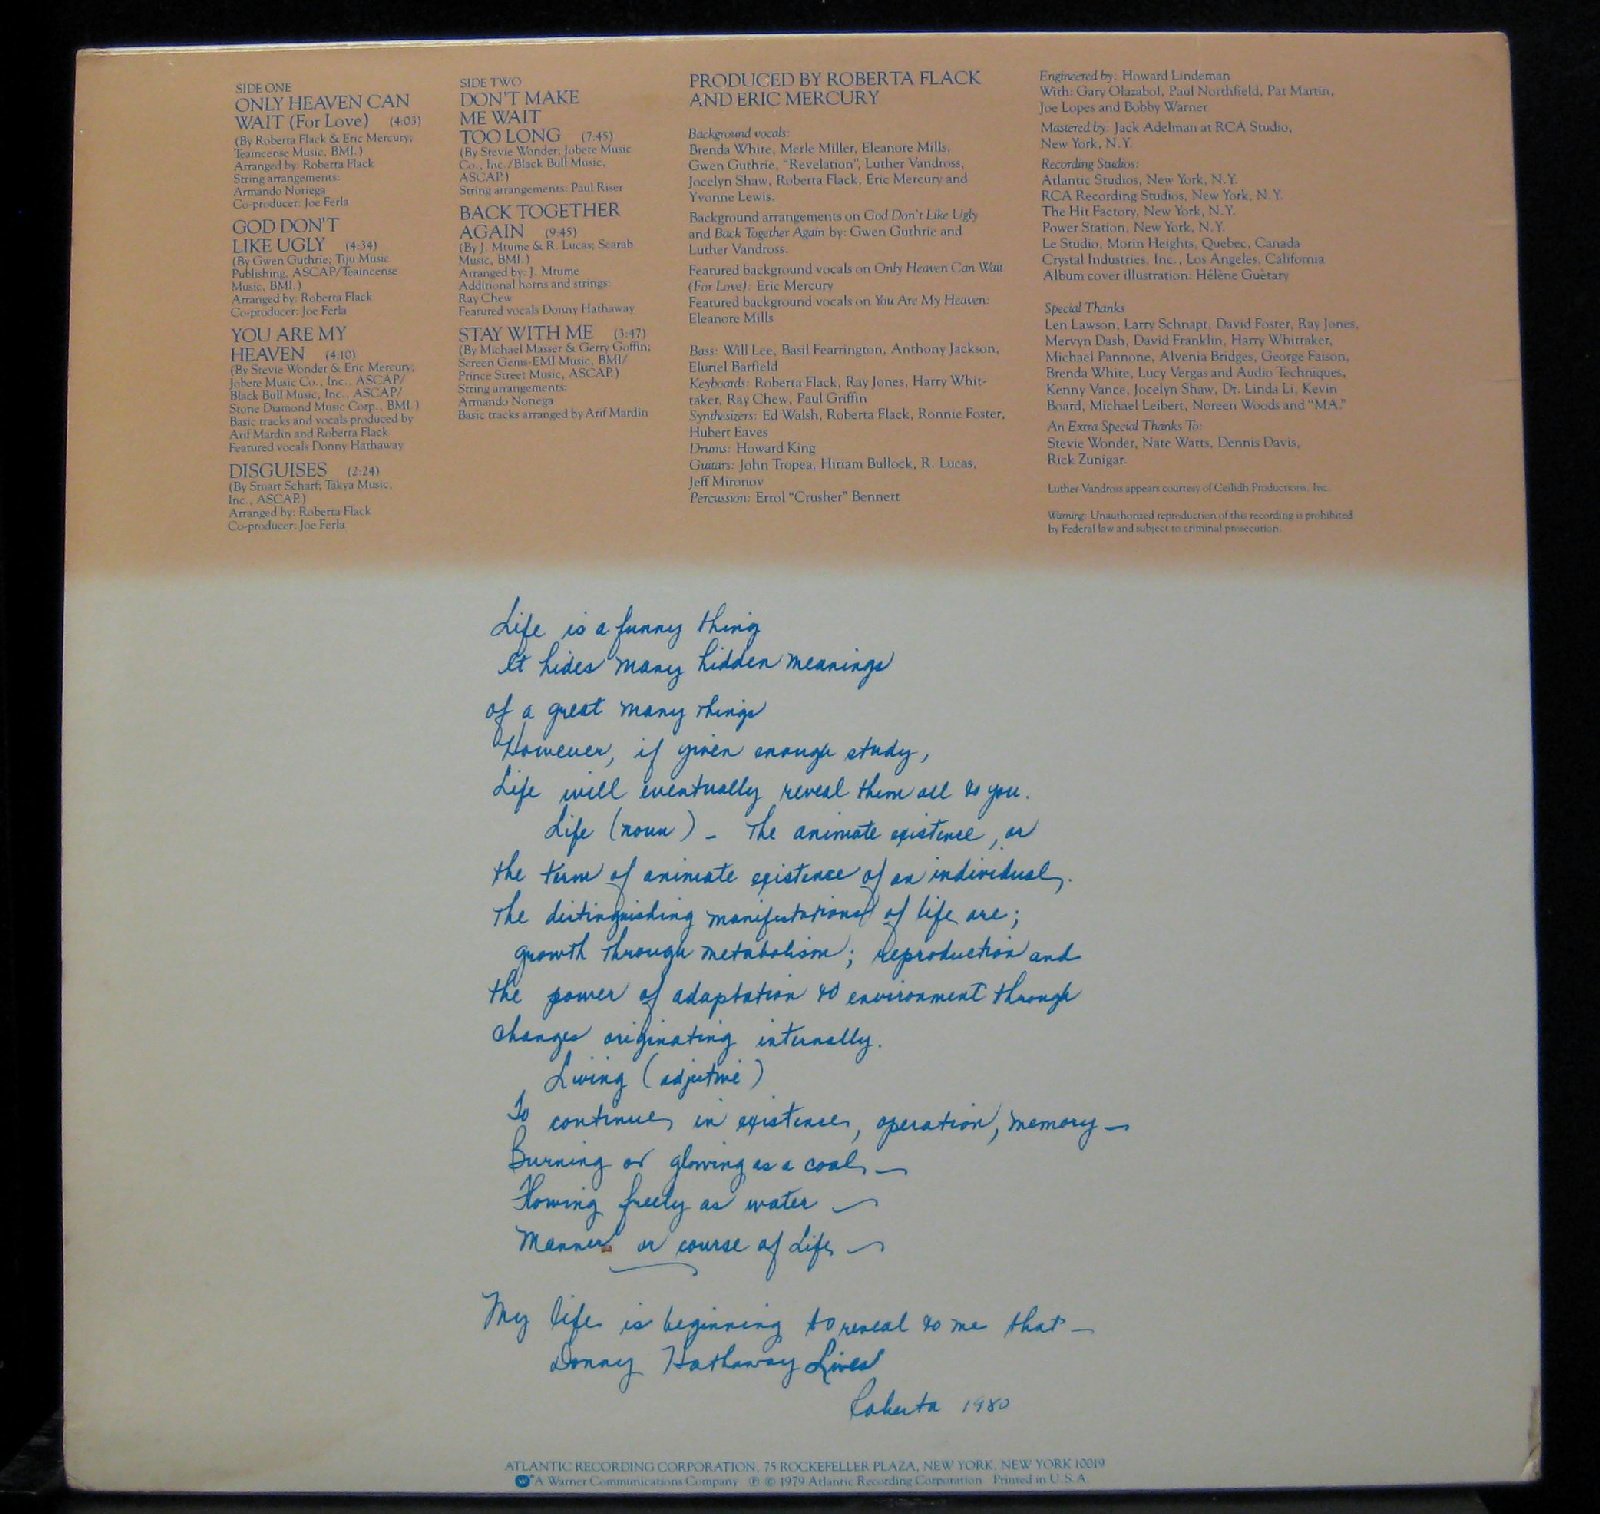 SIDE ONE
ONLY HEAVEN CAN
WAIT (For Love) (4:03)
(By Roberta Flack & Eric Mercury;
Teaincense Music, BMI.)
Arranged by: Roberta Flack
String arrangements:
Armando Noriega
Co-producer: Joe Ferla
GOD DON'T
LIKE UGLY (4:34)
(By Gwen Guthrie; Tiju Music
Publishing, ASCAP/Teaincense
Music, BMI.)
Arranged by: Roberta Flack
Co-producer: Joe Ferla
YOU ARE MY
HEAVEN (4:10)
(By Stevie Wonder & Eric Mercury;
Jobete Music Co., Inc., ASCAP/
Black Bull Music, Inc., ASCAP/
Stone Diamond Music Corp., BMI.)
Basic tracks and vocals produced by
Arif Mardin and Roberta Flack
Featured vocals Donny Hathaway
DISGUISES (2:24)
(By Stuart Scharf; Takya Music,
Inc., ASCAP.)
Arranged by: Roberta Flack
Co-producer: Joe Ferla
SIDE TWO
DON'T MAKE
ME WAIT
TOO LONG (7:45)
(By Stevie Wonder; Jobete Music
Co., Inc./Black Bull Music,
ASCAP.)
String arrangements: Paul Riser
BACK TOGETHER
AGAIN (9:45)
(By J. Mtume & R. Lucas; Scarab
Music, BMI.)
Arranged by: J. Mtume
Additional horns and strings:
Ray Chew
Featured vocals Donny Hathaway
STAY WITH ME (3:47)
(By Michael Masser & Gerry Goffin;
Screen Gems-EMI Music, BMI/
Prince Street Music, ASCAP.)
String arrangements:
Armando Noriega
Basic tracks arranged by Arif Mardin
PRODUCED BY ROBERTA FLACK
AND ERIC MERCURY
Background vocals:
Brenda White, Merle Miller, Eleanore Mills,
Gwen Guthrie, "Revelation", Luther Vandross,
Jocelyn Shaw, Roberta Flack, Eric Mercury and
Yvonne Lewis.
Background arrangements on God Don't Like Ugly
and Back Together Again by: Gwen Guthrie and
Luther Vandross.
Featured background vocals on Only Heaven Can Wait
(For Love): Eric Mercury
Featured background vocals on You Are My Heaven:
Eleanore Mills
Bass: Will Lee, Basil Fearrington, Anthony Jackson,
Eluriel Barfield
Keyboards: Roberta Flack, Ray Jones, Harry Whit-
taker, Ray Chew, Paul Griffin
Synthesizers: Ed Walsh, Roberta Flack, Ronnie Foster,
Hubert Eaves
Drums: Howard King
Guitars: John Tropea, Hiriam Bullock, R. Lucas,
Jeff Mironov
Percussion: Errol "Crusher" Bennett
Engineered by: Howard Lindeman
With: Gary Olazabol, Paul Northfield, Pat Martin,
Joe Lopes and Bobby Warner
Mastered by: Jack Adelman at RCA Studio,
New York, N.Y.
Recording Studios:
Atlantic Studios, New York, N.Y.
RCA Recording Studios, New York, N.Y.
The Hit Factory, New York, N.Y.
Power Station, New York, N.Y.
Le Studio, Morin Heights, Quebec, Canada
Crystal Industries, Inc., Los Angeles, California
Album cover illustration: Hélène Guètary
Special Thanks
Len Lawson, Larry Schnapt, David Foster, Ray Jones,
Mervyn Dash, David Franklin, Harry Whittaker,
Michael Pannone, Alvenia Bridges, George Faison,
Brenda White, Lucy Vergas and Audio Techniques,
Kenny Vance, Jocelyn Shaw, Dr. Linda Li, Kevin
Board, Michael Leibert, Noreen Woods and "MA."
An Extra Special Thanks To:
Stevie Wonder, Nate Watts, Dennis Davis,
Rick Zunigar.
Luther Vandross appears courtesy of Ceilidh Productions, Inc.
Warning: Unauthorized reproduction of this recording is prohibited
by Federal law and subject to criminal prosecution.
Life is a funny thing
It hides many hidden meanings
of a great many things
However, if given enough study,
Life will eventually reveal them all to you.
Life (noun) - The animate existence, or
the term of animate existence of an individual.
The distinguishing manifestations of life are;
growth through metabolism; reproduction and
the power of adaptation to environment through
changes originating internally.
Living (adjetive)
To continue in existence, operation, memory —
Burning or glowing as a coal —
Flowing freely as water —
Manner or course of Life —
My life is beginning to reveal to me that —
Donny Hathaway Lives
Roberta 1980
ATLANTIC RECORDING CORPORATION, 75 ROCKEFELLER PLAZA, NEW YORK, NEW YORK 10019
W A Warner Communications Company ℗ © 1979 Atlantic Recording Corporation Printed in U.S.A.